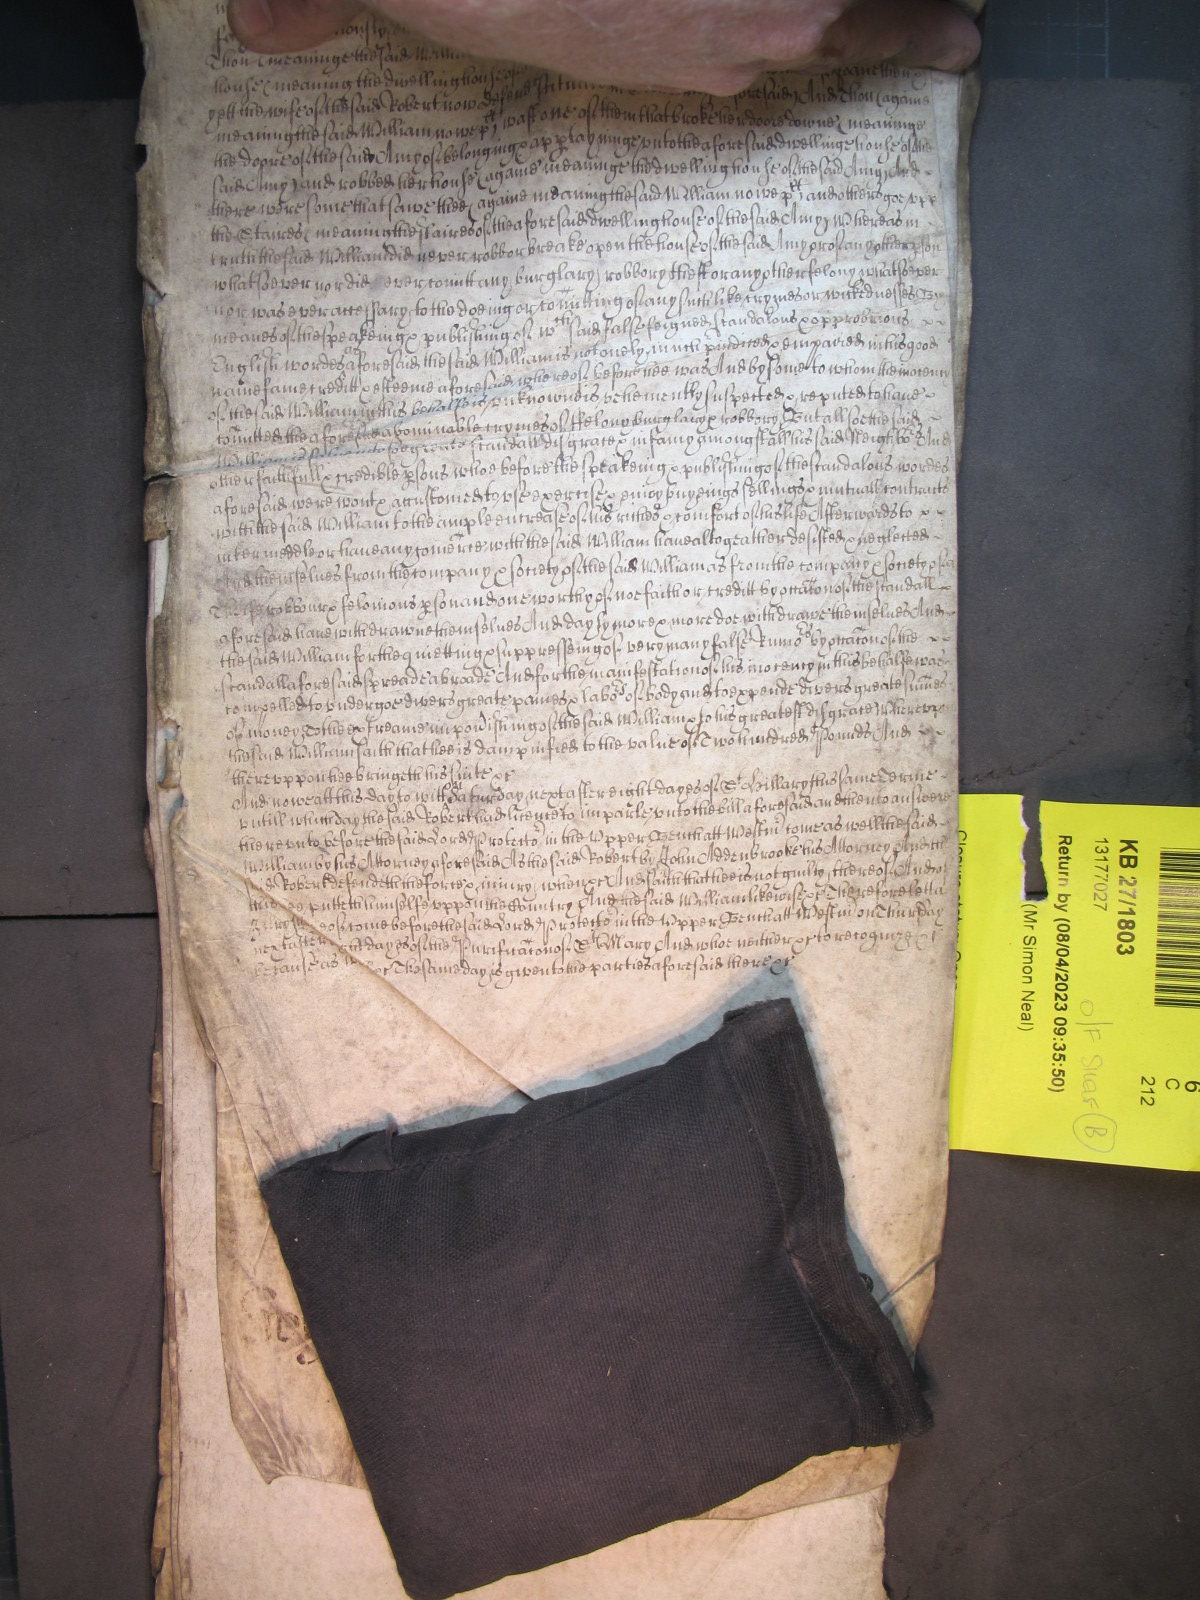 Thou (meaninge the said William
house (meaning the dwellinghouse of
yett the wife of the said Robert now defend foresaid) And Thou (againe
meaning the said William now pt) wast one of them that broke her doore downe (meaninge
the doore of the said Amy of belonging & apptayninge unto the aforesaid dwellinge house of the
said Amy) and robbed her house (againe meaninge the dwelling house of the said Amy) And
there were some that sawe thee (againe meaning the said William now pt) and others goe upp
the Staires (meaning the staires of the aforesaid dwelling house of the said Amy) Whereas in
truth the said William did never robb or breake open the house of the said Amy or of any other pson
whatsoever nor did ever comitt any burglary robbory theft or any other felony whatsoever
nor was ever accessary to the doeing or comitting of any such like crymes or wickednesses By
meanes of the speaking & publishing of wch said false feigned scandalous & opprobrious
English wordes aforesaid the said William is not onely much preiudiced & empaired in his good
name fame creditt & esteeme aforesaid whereof before hee was And by some to whom the inocency
of the said William in this behalfe is unknowne is vehemently suspected & reputed to have
comitted the aforesaid abominable crymes of Felony burglary & robbory But alsoe the said
William is fallen into soe greate scandall disgrace & infamy amongst all his said Neighbors And
other faithfull & credible psons whoe before the speaking & publishing of the scandalous wordes
aforesaid were wont & accustomed to use exercise & enioy buyings sellings & mutuall contracts
with the said William to the ample encrease of his riches & comfort of his life Afterwards to
intermeddle or have any comerce with the said William have altogeather desisted & neglected
And themselves from the company & society of the said William as from the company & society of a
Theife robbour & felonious pson and one worthy of noe faith or creditt by occacon of the scandall
aforesaid have withdrawne themselves And day by more & more doe withdrawe themselves And
the said William for the quietting & suppressing of very many false Rumors by occacon of the
scandall aforesaid spreade abroade And for the manifestacon of his inocency in this behalfe was
compelled to undergoe divers greate paines & labors of body and to expende divers greate sumes
of money To the extreame impovishing of the said William & to his greatest disgrace Whereuppon
the said William saith that hee is dampnified to the value of Two hundred Pounds And
thereuppon hee bringeth his suite &c
And now att this day to witt Saturday next after eight dayes of St Hillary this same Terme
untill which day the said Robert had licence to imparle unto the bill aforesaid and then to answere
thereunto before the said Lord Protector in the Upper Bench att Westm come as well the said
William by his Attorney aforesaid As the said Robert by John Addenbrooke his Attorney And the
said Robert defendeth the force & iniury when &c And saith that hee is not guilty thereof And of
this hee putteth himselfe uppon the Country And the said William likewise &c Therefore lett a
Jury thereof come before the said Lord Protector in the Upper Bench att Westm on Thursday
next after eight dayes of the Purificacon of St Mary And whoe neither &c to recognize &c
because as well &c The same day is given to the parties aforesaid there &c
KB 27/1803
13177027
Return by (08/04/2023 09:35:50)
(Mr Simon Neal)
Closure status: Open
O/F Star B
6
C
212